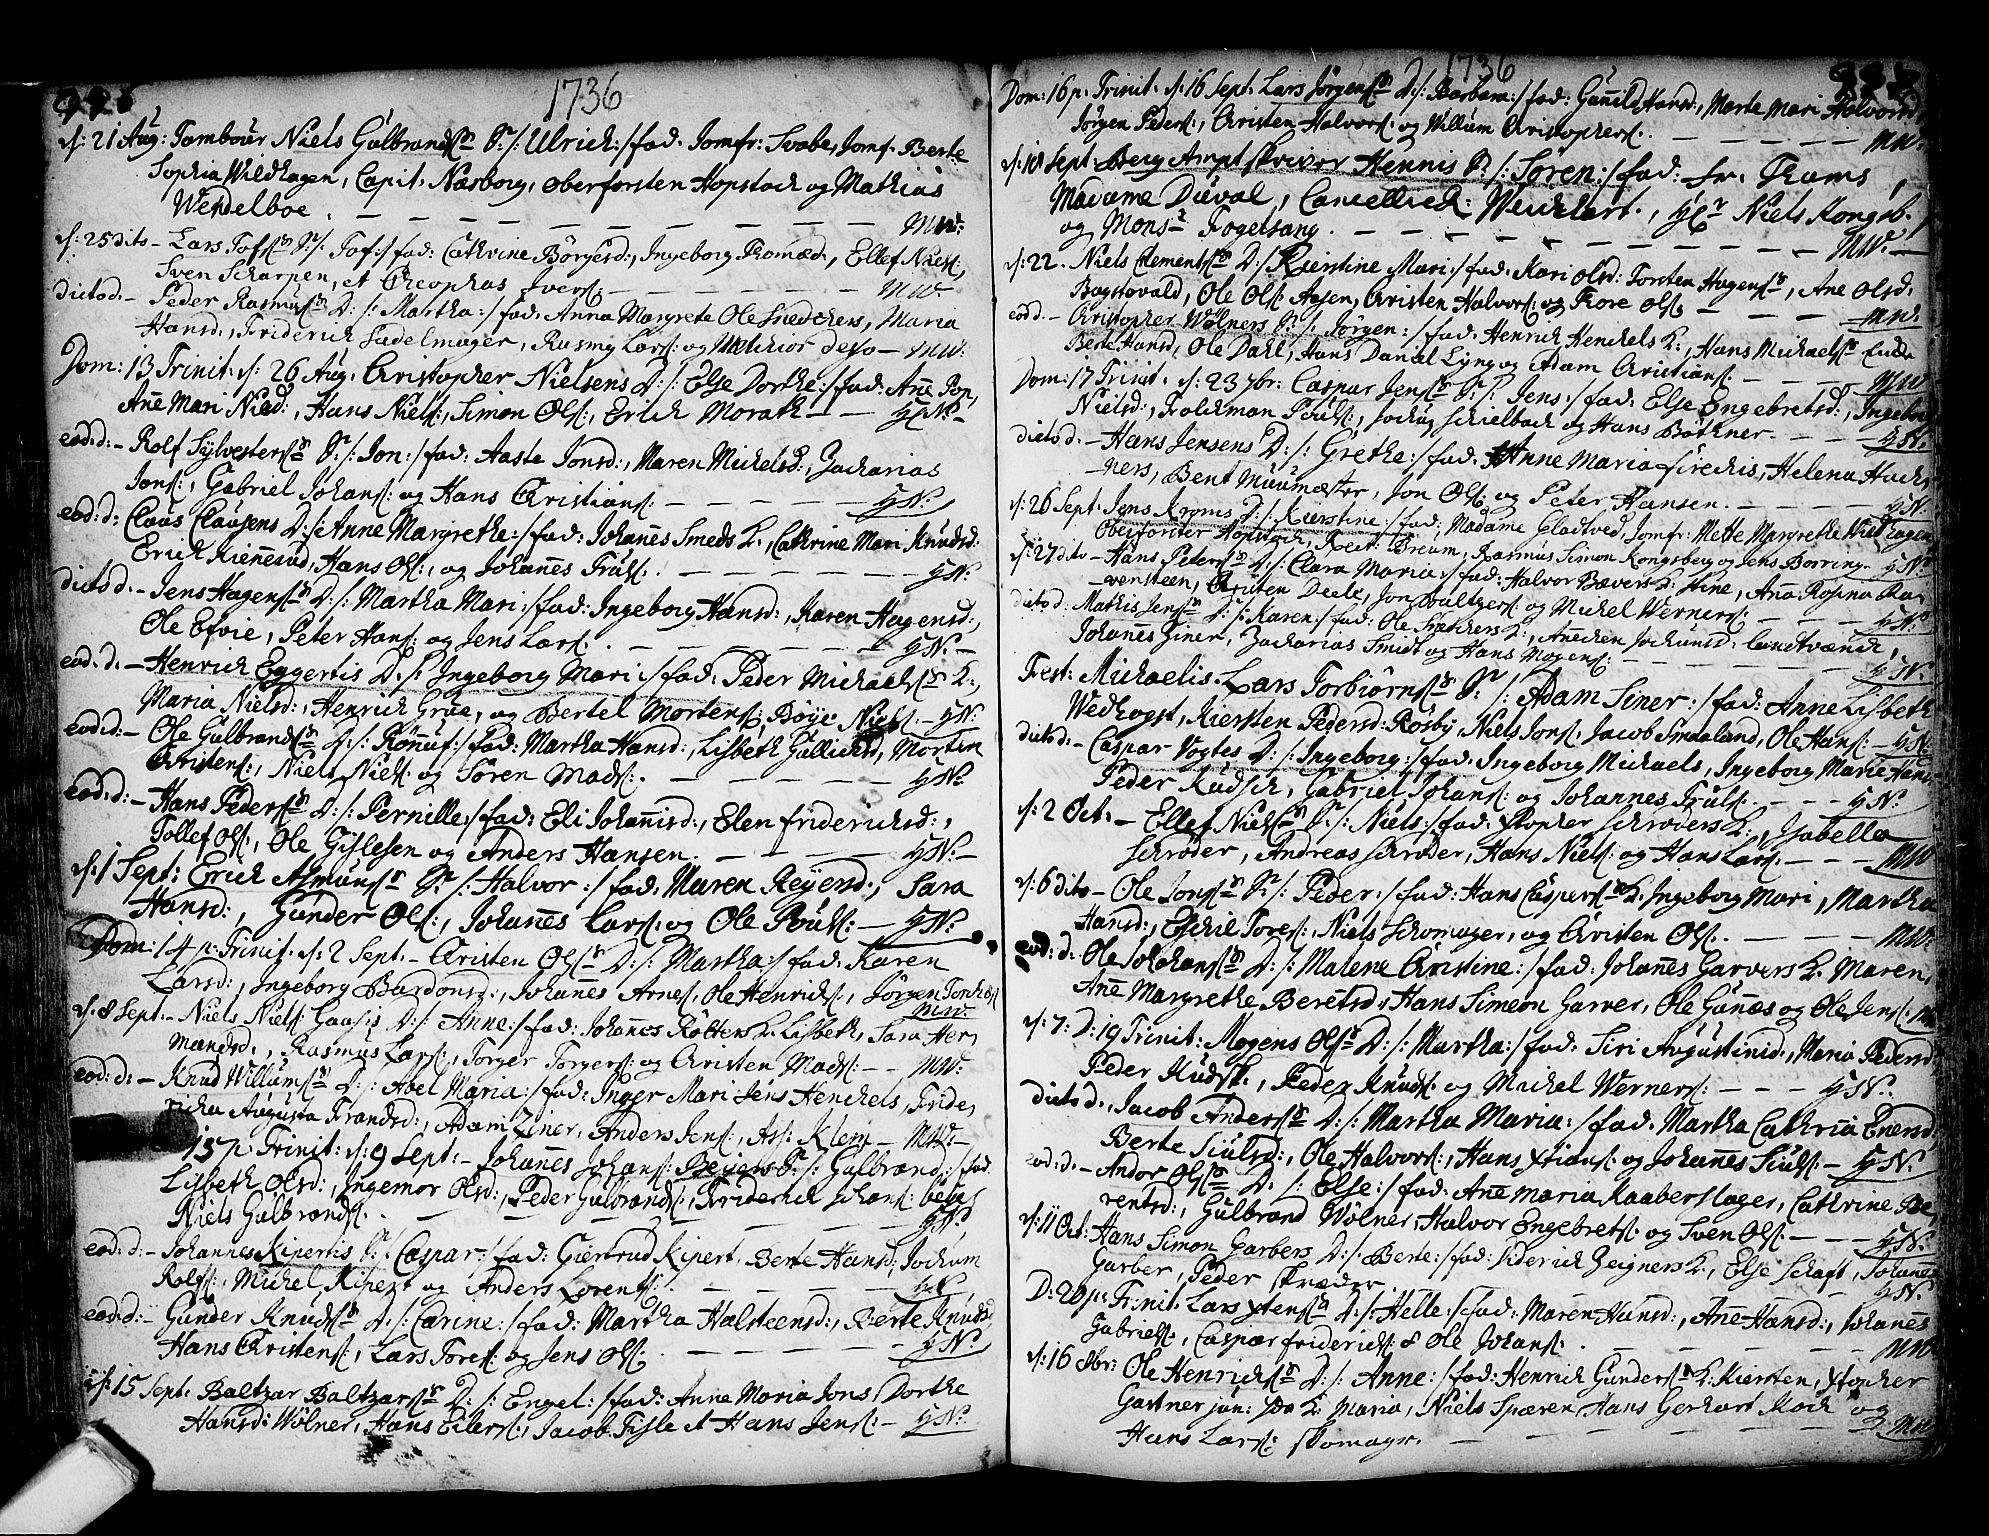 1736
d: 21 Aug: Tambour Niels Gulbrands:n S:/: Ulrich :/ fad: Jomfr: Svabe, Jomf. Berte
Sophia Wildhagen, Capit. Næsborg, oberforsten Hopstock og Mathias
Wendelboe. — MW:
d: 25 dito – Lars Tofs:n S:/: Tof:/ fad: Cathrine Børgersd:, Ingeborg Thomæd:, Ellef Niels:,
Sven Scharpen, et Cleophas Ivers: — MW.
dito d. – Peder Rasmus:n D:/: Martha:/ fad: Anna Margrete Ole Snedchers, Maria
Hansd:, Friderich Sadelmager, Rasmus Lars: og Melchior — MW:
Dom: 13 Trinit. d: 26 Aug. Christopher Nielsens D:/: Else Dorthe:/ fad: Ane Pop,
Ane Mari Nield:, Hans Niels:, Simon Ols:, Erich Morath — HN.
eod: d: – Rolf Sylvesters:n S:/: Jon:/ fad: Aaste Jonsd:, Maren Michelsd:, Zacharias
Jons:, Gabriel Johans: og Hans Christians: — HN:
eod: d: Claus Clausens D:/: Anne Margrethe:/ fad: Johannes Smeds K:, Cathrine Mari Knudsd:
Erich, Hans Ols:, og Johannes Truls: — HN:
dito d. – Jens Hagens:n D:/: Martha Mari:/ fad: Ingeborg Hansd:, Karen Hagensd:,
Ole Efvie, Peter Hans: og Jens Lars: — HN. –
eod. d. – Henrich Eggertis D:/: Ingeborg Mari:/ fad: Peder Michaels:n K:,
Maria Nielsd:, Henrich Grue, og Bertel Mortens: Bøye Niels: – HN:
eod: d: – Ole Gulbrands:n D:/: Rønnuf:/ fad: Martha Hansd:, Lisbeth Gullichsd, Morten
Christens:, Niels Niels: og Søren Mads: — HN:
eod: d: – Hans Peders:n D:/: Pernille:/ fad: Eli Johannisd:, Elen friderichsd:,
Tollef Ols:, Ole Gislesen og Anders Hansen. — HN: –
d: 1 Sept: Erich Asmuns:n S:/: Halvor:/ fad: Maren Reyersd:, Sara
Hansd:, Gunder Ols:, Johannes Lars: og Ole Pouls: — HN:
Dom: 14 p: Trinit. d: 2 Sept. – Christen Ols:n D:/: Martha:/ fad: Karen
Larsd:, Ingeborg Bardonsd:, Johannes Arnes:, Ole Henrichs:, Jørgen
MW:
d. 8 Sept. – Niels Niels: D:/: Anne:/ fad: Johannes Røtters K: Lisbeth, Sara Her,
mandsd:, Rasmus Lars:, Torger Torgers: og Christen Mads: – – MW:
eod: d: – Knud Willums:n D:/: Abel Maria:/ fad: Inger Mari Jens Henchels, Fride,
richa Augusta Frandsd:, Adam Ziner, Anders Jens:, As: Klem – MW: –
15 p Trinit: d: 9 Sept: – Johannes Johans: Beyers S:/: Gulbrand:/ fad:
Lisbeth Olsd:, Ingemor Olsd:, Peder Gulbrands:, Friderich Johans:
Niels Gulbrands:. — HN:
eod: d: – Johannes Kipertis S:/: Caspar:/ fad: Giertrud Kipert, Berte Hansd:, Jochum
Rolfs:, Michel Kipert og Anders Lorents: — HN:
eod: d: – Gunder Knuds:n D:/: Carine:/ fad: Martha Halsteensd:, Berte Knudsd,
Hans Christens:, Lars Tores: og Jens Ols: — HN:
d: 15 Sept. Baltzar Baltzars:n D:/: Engel:/ fad: Anne Maria Jons, Dorthe
Hansd: Wølner, Hans Eilers:, Jacob Fisle et Hans Jens: – HN:
1736
Dom: 16 p. Trinit. d: 16 Sept. Lars Jørgens:n D:/: Barbara:/ fad: Gunild Hansd:, Marte Mari Halvorsd,
Jørgen Peders:, Christen Halvors: og Willum Christophers: — MW:
d: 18 Sept. Berg Ampt skriver Hennis S:/: Søren:/ fad: Fr. Thams,
Madame Duval, Cancellieh: Weichart, Hr Niels Kongsb.,
og Mons:r Fogelsang. — MW. –
d: 22. Niels Clements:n D:/: Kierstine Mari:/ fad: Kari Olsd: Torsten Hagens:n, Ane Olsd.
Bogstovald, Ole Ols: Aasen, Christen Halvors: og Tore Ols: — MW.
eod d. – Christopher Wølners S:/: Jørgen:/ fad: Henrich Henchels K:, Hans Michaels:n
Berte Hansd, Ole Dahl, Hans Daniel Lyng og Adam Christians: — MW
Dom: 17 Trinit. d: 23 7br: Caspar Jens:n S:/: Jens:/ fad: Else Engebretsd:, Ingeborg
Nielsd:, Folchman Pouls:, Jochum Schielbach og Hans Bøthner. — HN.
dito d. – Hans Jensens D:/: Grethe:/ fad: Anne Maria Fredchis, Helena Huch,
ners, Bent Muurmæster, Jon Ols: og Peter Hansen. — HN.
d: 26 Sept. Jens Kromis D:/: Kierstine:/ fad: Madame Gladtved, Jomfr: Mette Margrethe Wildhagen,
Oberforster Hopstock, Breum, Rasmus Simon Kongsberg og Jens Borring. – HN.
d: 27 dito – Hans Peters:n D:/: Clara Maria:/ fad: Halvor Bævers K: Stine, Ana Rosina Ra,
vensteen, Christen Deele, Jon Baltzers: og Michel Werners: — HN:
dito d: Mathis Jens:n D:/: Karen:/ fad: Ole K:, Anechen Jochumsd:
Johannes Ziner, Zacharias Smidt og Hans Mogens: — HN.
Fest: Michaelis. Lars Torbiørns:n S:/: Adam Siner:/ fad: Anne Lisbeth
Wedhogst, Kiersten Pedersd: Røsby, Niels Jons:, Jacob Smaaland, Ole Hans: – HN:
dito d: – Caspar Vogtes D:/: Ingeborg:/ fad: Ingeborg Michaels, Ingeborg Marie Hans
Peder Kudsch, Gabriel Johans: og Johannes Truls: – – – HN:
d: 2 Oct: – Ellef Niels:n S:/: Niels:/ fad: Xtopher Schrøders K:, Isabella
Schrøder, Andreas Schrøder, Hans Niels: og Hans Lars: – – – MW
d: 6 dito – Ole Jons:n S:/: Peder:/ fad: Hans Caspers:n K: Ingeborg Mari, Martha
Hansd:, Eschil Tores:, Niels Schomager, og Christen Ols: — MW:
eod: d: Ole Johans:n D:/: Malene Christine:/ fad: Johannes Garvers K. Maren,
Ane Margrethe Beretsd:, Hans Simeon Garver, Ole Gunæs og Ole Jens: MW
d: 7: D: 19 Trinit: Mogens Ols:n D:/: Martha:/ fad: Siri Augustinid:, Maria Pedersd
Peder Kudsk:, Peder Knuds: og Michel Werners: – – – HN.
dito d. Jacob Anders:n D:/: Martha Maria:/ fad: Martha Cathrina Enersd,
Berte Siulsd:, Ole Halvors:, Hans Xtians: og Johannes Siuls: – HN:
eod: d: – Andor Ols:n D:/: Else:/ fad: Ane Maria Kaaberslager, Cathrine Be,
rentsd:, Gulbrand Wølner, Halvor Engebrets: og Sven Ols: – – – HN:
d: 11 Oct: Hans Simon Garbers D:/: Berte:/ fad: fiderich Zeigners K:, Else Schaft, Johanes
Garber, Peder Skræder. HN:
D: 20 p: Trinit. Lars Xtens:n D:/: Helle:/ fad: Maren Hansd:, Ane Hansd:, Johannes
Gabriels:, Caspar friderichs: & Ole Johans: — MW
d: 16 8br: Ole Henrichs:n D:/: Anne:/ fad: Henrich Gunders:n K: Kiersten, Xtopher
Gartner jun: K: Maria, Niels Spæren, Hans Gerhart Koch og
Hans Lars: skomagr. — MW